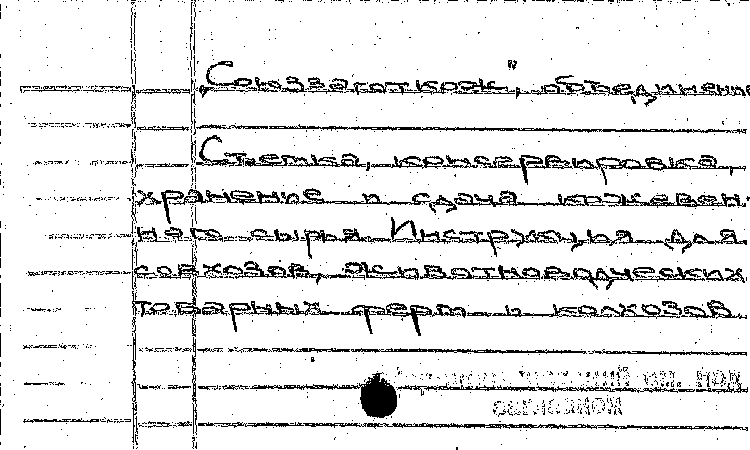 „Союззаготкож", объединение
Съемка, консервировка,
хранение и сдача кожевен-
ного сырья. Инструкция для
совхозов, животноводческих
товарных ферм и колхозов.
см. под